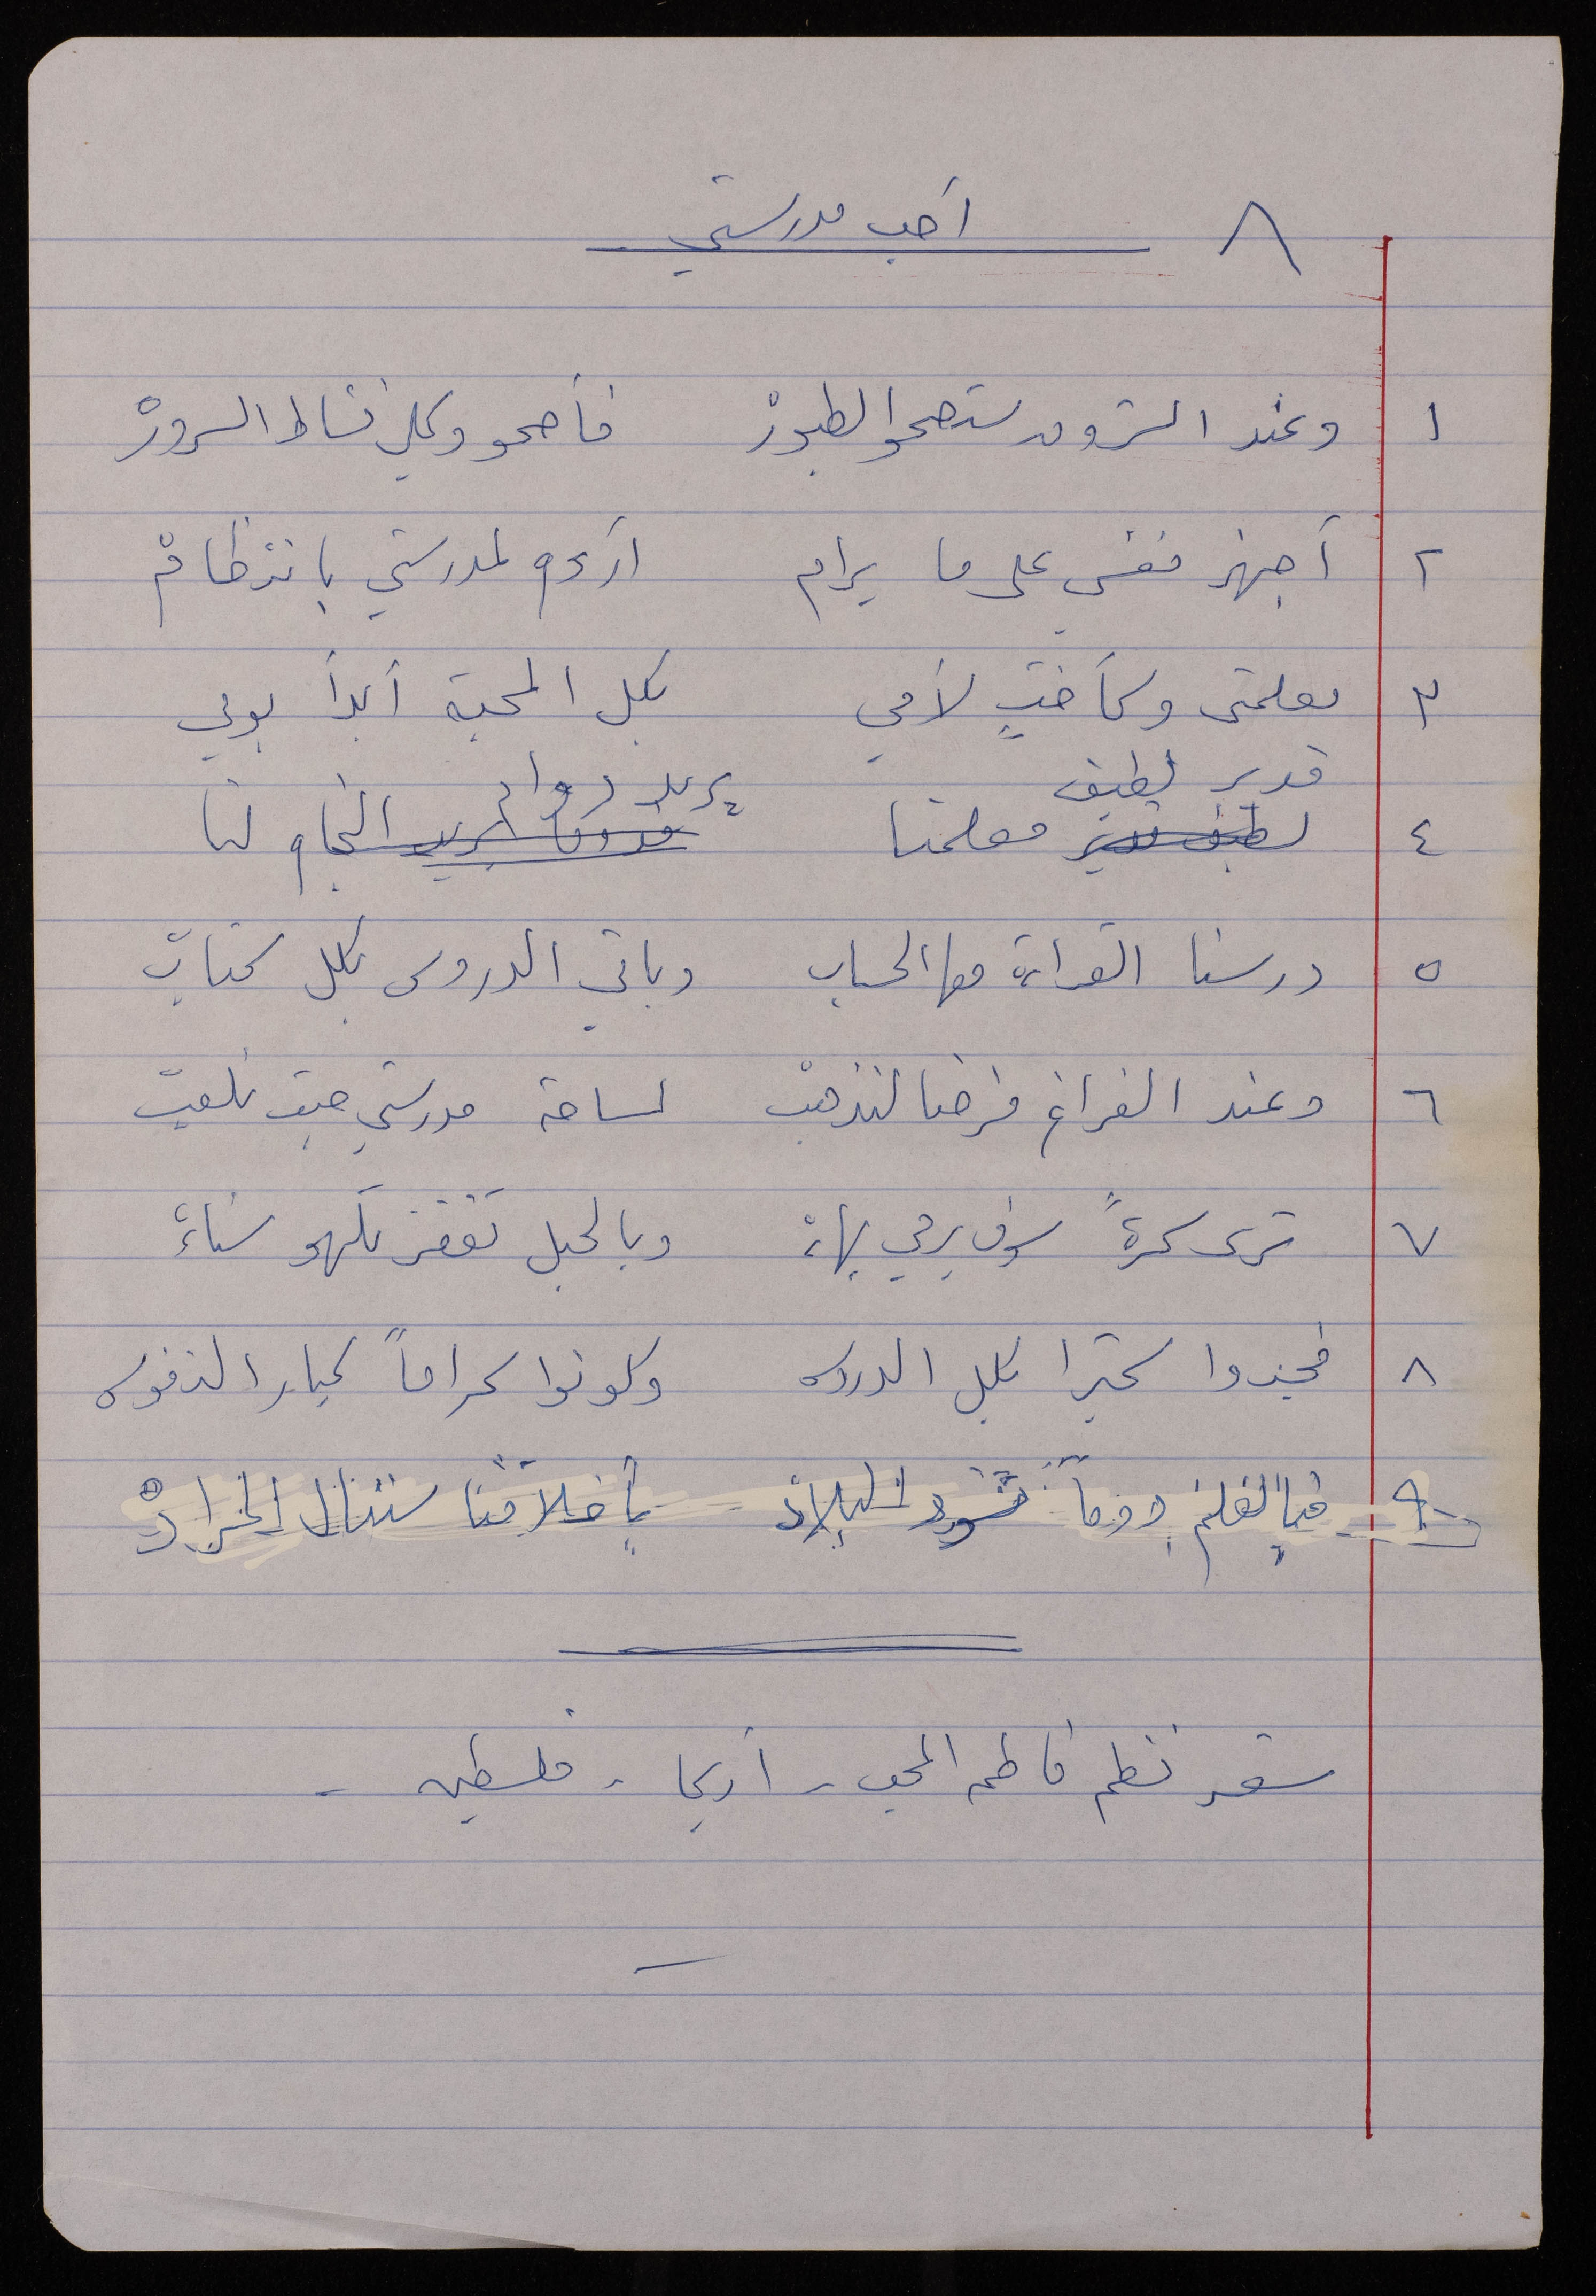 ٨ أحب مدرستي
١ وعند الشروق ستصحو الطيورْ فأصحو وكلي نشاط السرورْ
٢ أجهز نفسي على ما يرام أروح لمدرستي بانتظامْ
٣ معلمتي وكأختٍ لأمي بكل المحبة أبدأ يومي
قدير لطيف يريد دوام
٤ معلمنا النجاح لنا
٥ درسنا القراءة معها الحساب وباقي الدروس بكل كتابْ
٦ وعند الفراغ فرضا لنذهبْ لساحة مدرستي حيث نلعبْ
٧ ترى كرةً سوف يرمي بهاءْ وبالحبل تقفز تلهو سناءْ
٨ فجدوا كثيرا بكل الدروس وكونوا كراماً كبار النفوس
٩ فبالعلم دوماً نسود البلادْ بأخلاقنا سننال المرادْ
شعر نظم فاطمه المحب - أريحا - فلسطين -